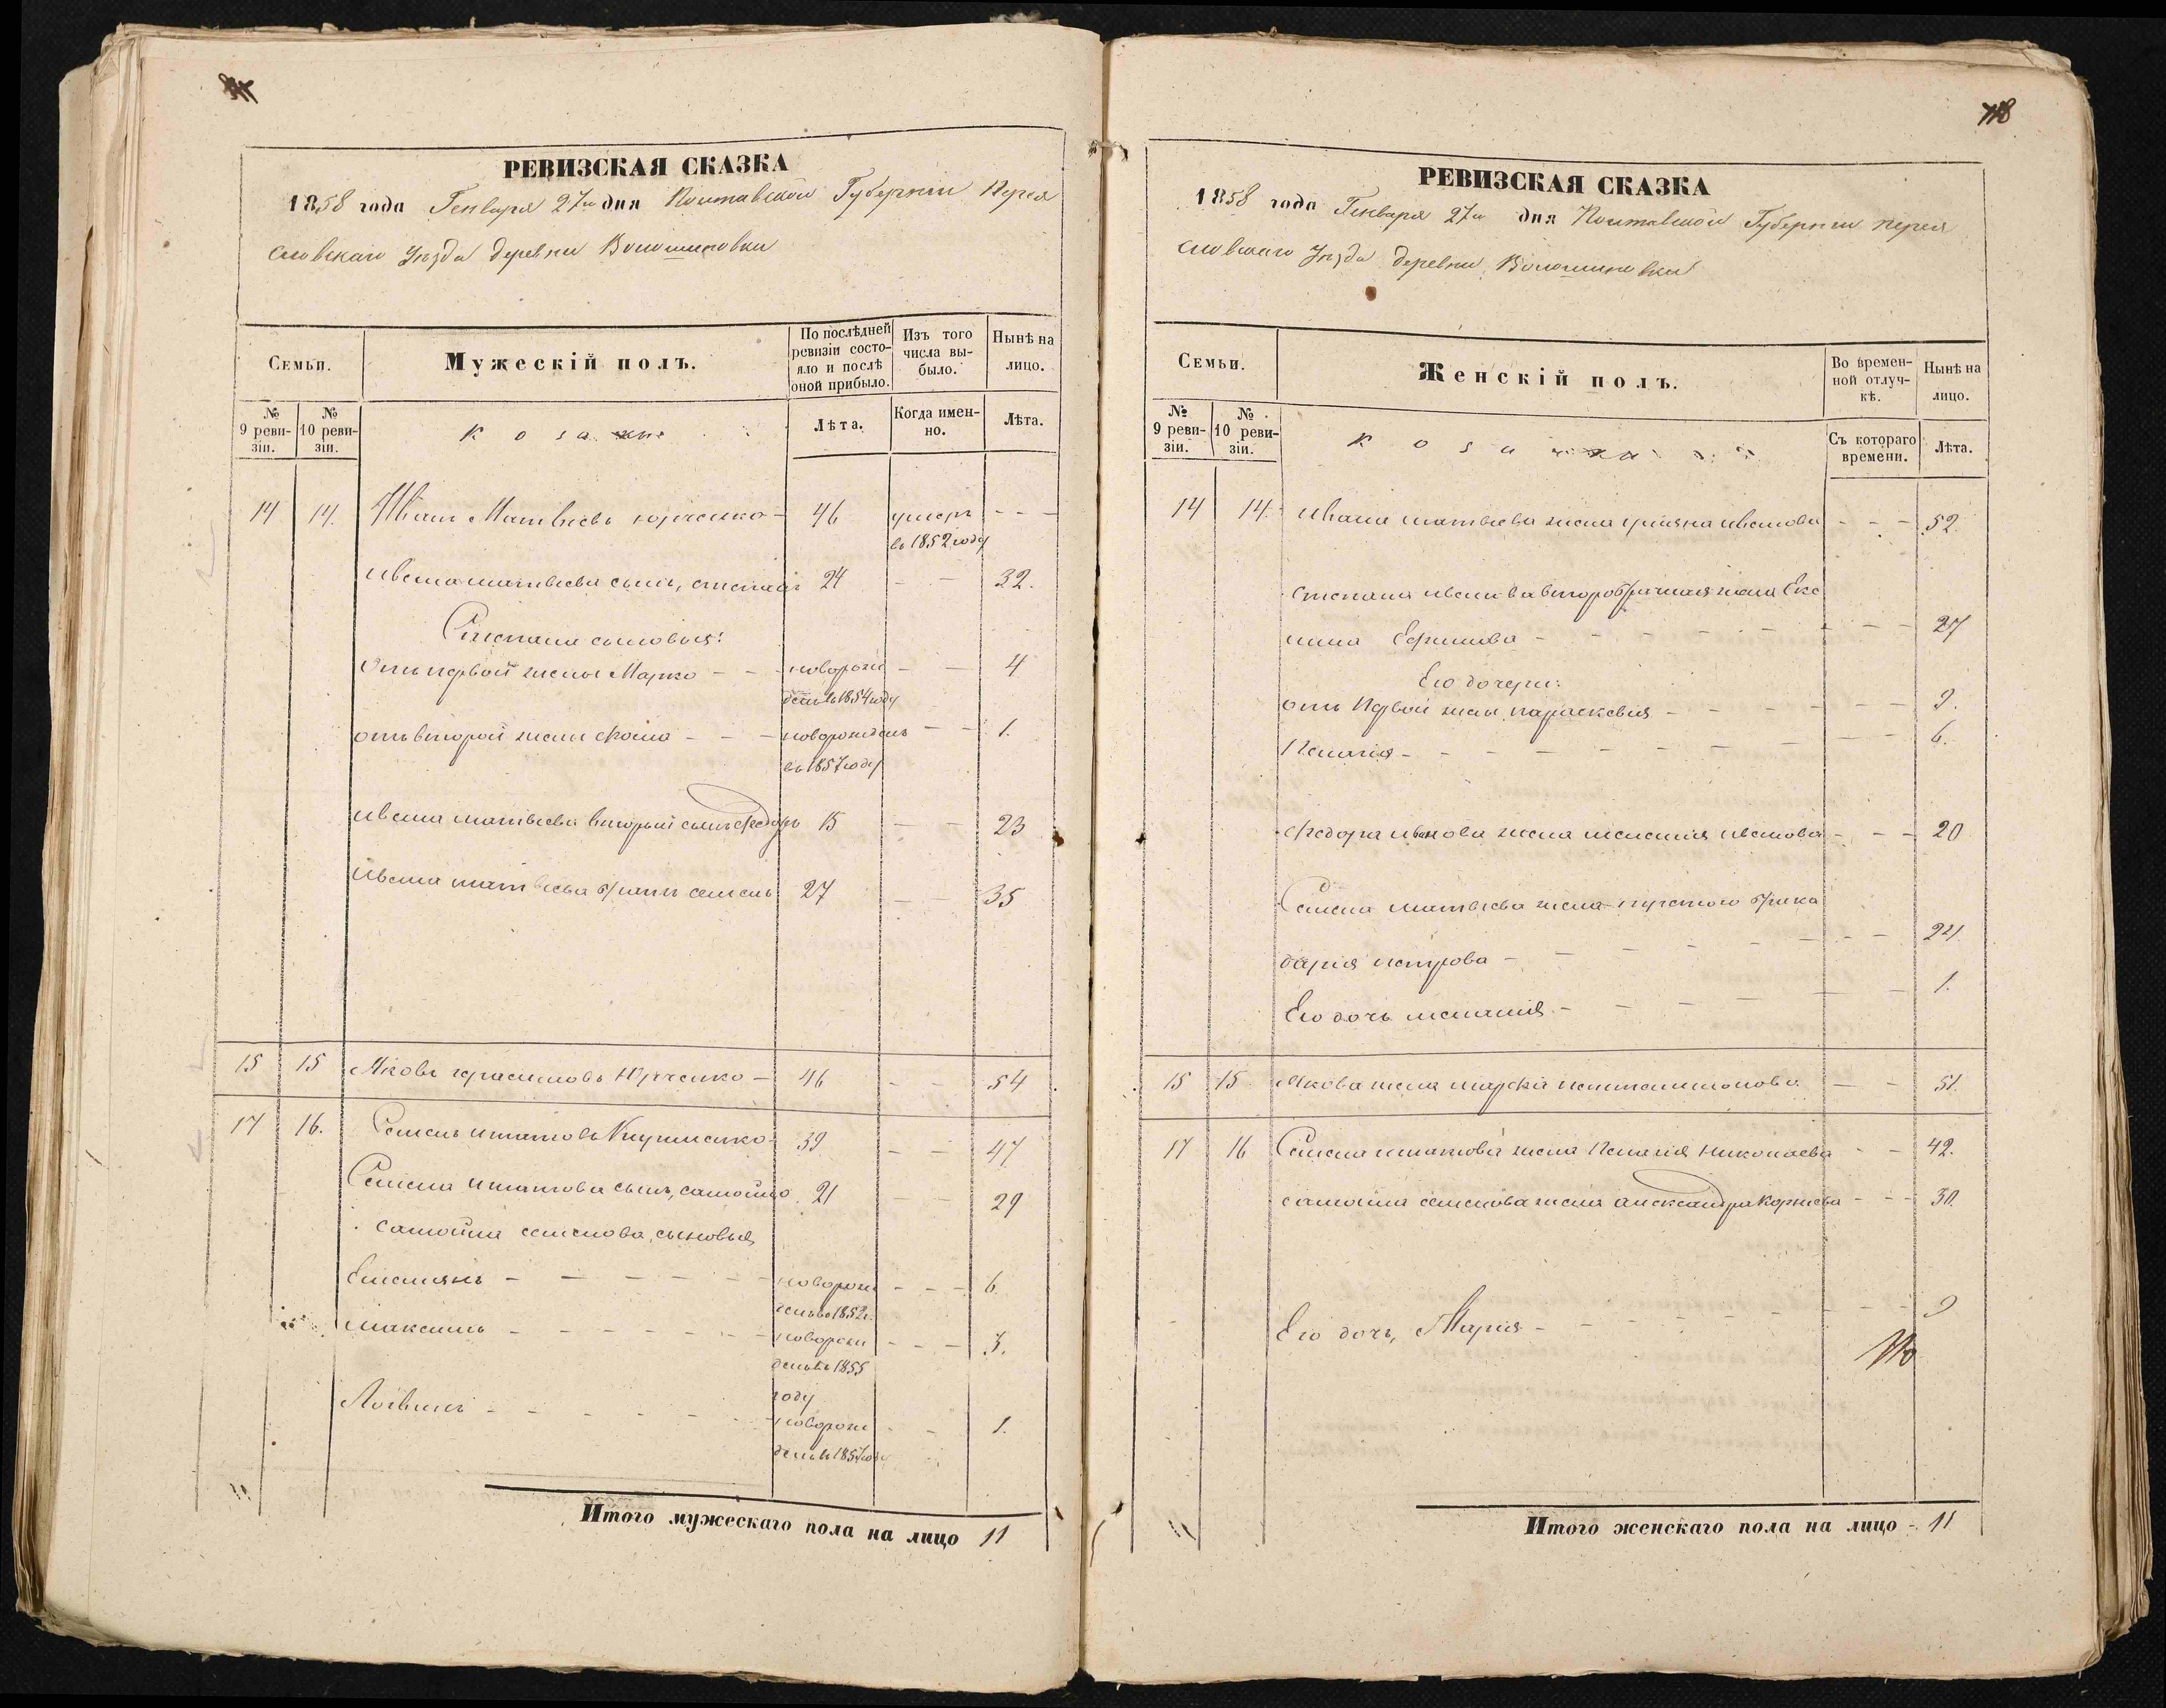 РЕВИЗСКАЯ СКАЗКА
1858 года Генваря 27го дня Полтавской Губернии Перея
славскаго Уезда деревни Волошиновки
Семьи.
Мужескій полъ.
По послѣдней ревизіи состояло и послѣ оной прибыло.
Изъ того числа выбыло.
Нынѣ на лицо.
№ 9 ревизіи.
№ 10 ревизіи.
Козаки
Лѣта.
Когда именно.
Лѣта.
14 14. Иванъ Матвеевъ Юрченко - 46 умеръ - - -
въ 1852 году
Ивана матвеева сынъ, степанъ 24 - - 32.
Степана сыновья:
Отъ первой жены Марко - - - новорож - - 4
денъ въ 1854 году
отъ второй жены фома - - - новорожденъ - - 1.
въ 1857 году
Ивана матвеева вторый сынъ федоръ 15 - - 23
Ивана матвеева братъ семенъ 27 - - 35
15 15 Яковъ герасимовъ Юрченко - 46 - - 54
17 16. Семенъ игнатовъ - 39 - - 47
Семена игнатова сынъ, самойло 21 - - 29
самойла семенова, сыновья
Емельянъ - - - - - - новорож - - - 6.
денъ въ 1852 г.
максимъ - - - - - - новорож - - - 3.
денъ въ 1855
году
Логвинъ - - - - - - новорож - - 1.
денъ въ 1857 году
Итого мужескаго пола на лицо 11
118
РЕВИЗСКАЯ СКАЗКА
1858 года Генваря 27го дня Полтавской Губернии перея
славскаго Уезда деревни Волошиновки
Семьи.
Женскій полъ.
Во временной отлучкѣ.
Нынѣ на лицо.
№ 9 ревизіи.
№ 10 ревизіи.
Козачки
Съ котораго времени.
Лѣта.
14 14. Ивана матвеева жена ивanова - - - 52.
степана иванова второбрачная жена
Ефимова - - - - - - - - 27
Его дочери:
отъ Первой жены параскевия - - - - - - 9.
Пелагия - - - - - - - - - - 6.
Федора иванова жена мелания иванова - - - 20
Семена матвеева жена - втораго брака
дария петрова - - - - - - - - 24.
Его дочь мелания - - - - - - 1.
15 15. Якова жена - - 51.
17 16 Семена игнатова жена Пелагия николаева - - 42.
самойла семенова жена александра Корнеева - - - 30.
Его дочь, Мария - - - - - - - - 9
Итого женскаго пола на лицо - 11